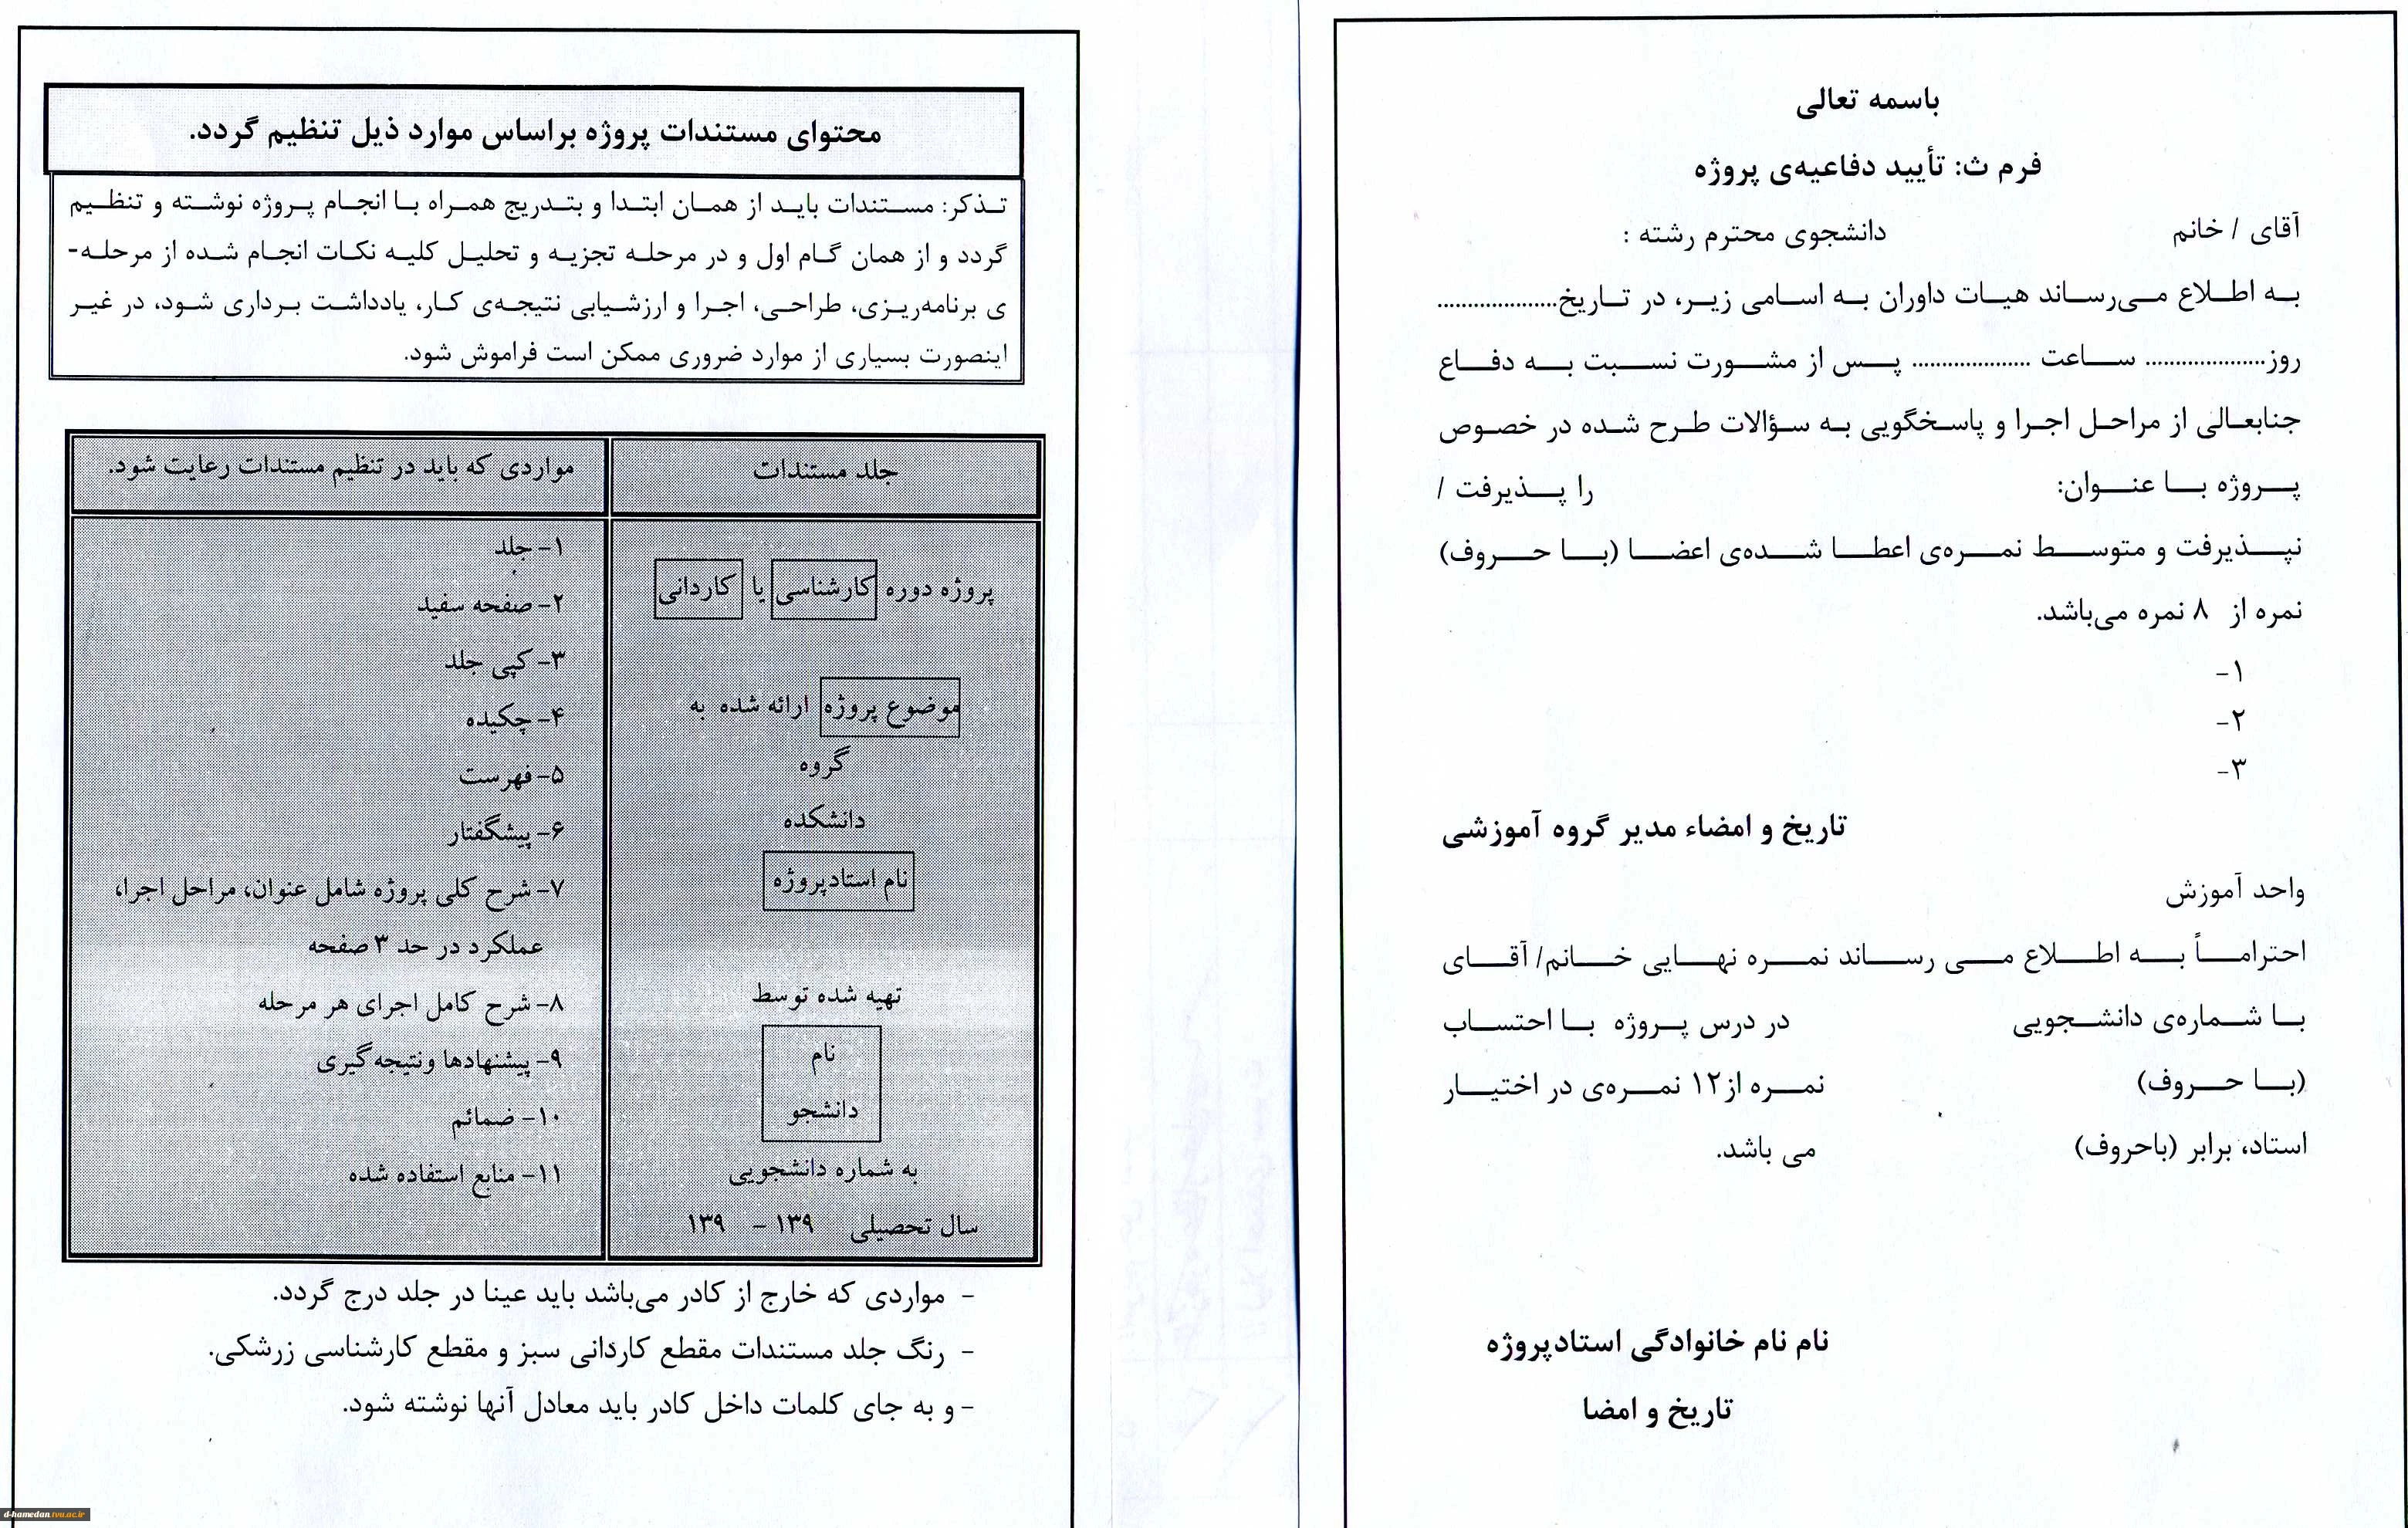 باسمه تعالی
فرم ث: تأیید دفاعیه‌ی پروژه
آقای / خانم دانشجوی محترم رشته :
به اطلاع می‌رساند هیات داوران به اسامی زیر، در تاریخ....................
روز.................... ساعت .................... پس از مشورت نسبت به دفاع
جنابعالی از مراحل اجرا و پاسخگویی به سؤالات طرح شده در خصوص
پروژه با عنوان: را پذیرفت /
نپذیرفت و متوسط نمره‌ی اعطا شده‌ی اعضا (با حروف)
نمره از ۸ نمره می‌باشد.
۱-
۲-
۳-
تاریخ و امضاء مدیر گروه آموزشی
واحد آموزش
احتراماً به اطلاع می رساند نمره نهایی خانم/ آقای
با شماره‌ی دانشجویی در درس پروژه با احتساب
(با حروف) نمره از۱۲ نمره‌ی در اختیار
استاد، برابر (باحروف) می باشد.
نام نام خانوادگی استادپروژه
تاریخ و امضا
محتوای مستندات پروژه براساس موارد ذیل تنظیم گردد.
تذکر: مستندات باید از همان ابتدا و بتدریج همراه با انجام پروژه نوشته و تنظیم
گردد و از همان گام اول و در مرحله تجزیه و تحلیل کلیه نکات انجام شده از مرحله-
ی برنامه‌ریزی، طراحی، اجرا و ارزشیابی نتیجه‌ی کار، یادداشت برداری شود، در غیر
اینصورت بسیاری از موارد ضروری ممکن است فراموش شود.
جلد مستندات
پروژه دوره کارشناسی یا کاردانی
موضوع پروژه ارائه شده به
گروه
دانشکده
نام استادپروژه
تهیه شده توسط
نام
دانشجو
به شماره دانشجویی
سال تحصیلی ۱۳۹ - ۱۳۹
مواردی که باید در تنظیم مستندات رعایت شود.
۱- جلد
۲- صفحه سفید
۳- کپی جلد
۴- چکیده
۵- فهرست
۶- پیشگفتار
۷- شرح کلی پروژه شامل عنوان، مراحل اجرا،
عملکرد در حد ۳ صفحه
۸- شرح کامل اجرای هر مرحله
۹- پیشنهادها ونتیجه‌گیری
۱۰- ضمائم
۱۱- منابع استفاده شده
- مواردی که خارج از کادر می‌باشد باید عینا در جلد درج گردد.
- رنگ جلد مستندات مقطع کاردانی سبز و مقطع کارشناسی زرشکی.
- و به جای کلمات داخل کادر باید معادل آنها نوشته شود.
d-hamedan.tvu.ac.ir